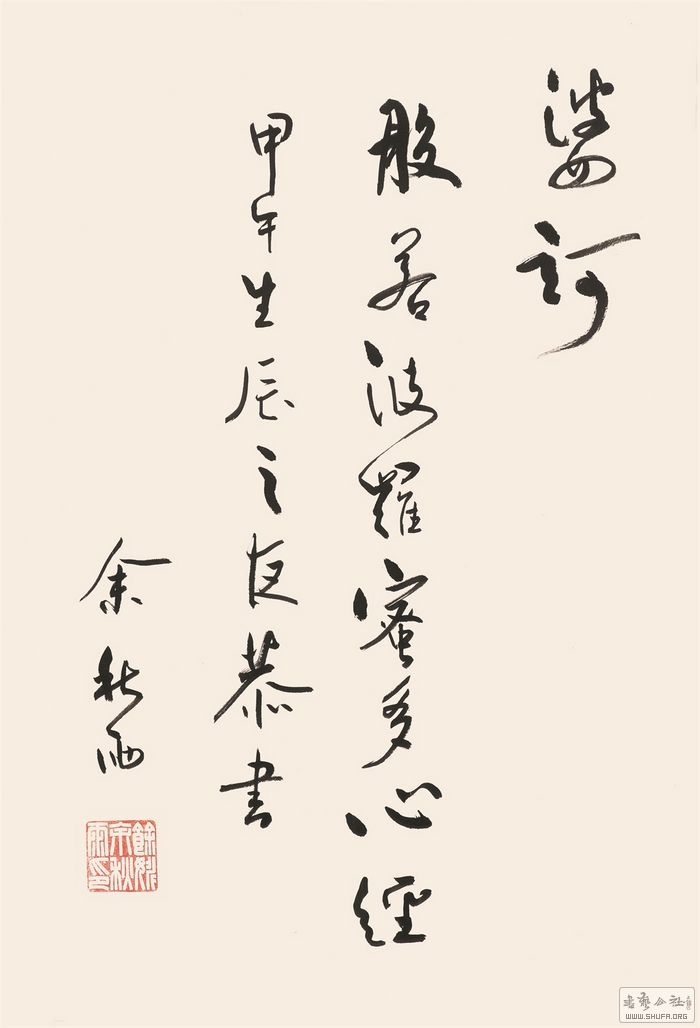 婆訶
般若波羅蜜多心經
甲午生辰之夜恭書
余秋雨
餘姚
余秋
雨印
書藝公社
WWW.SHUFA.ORG